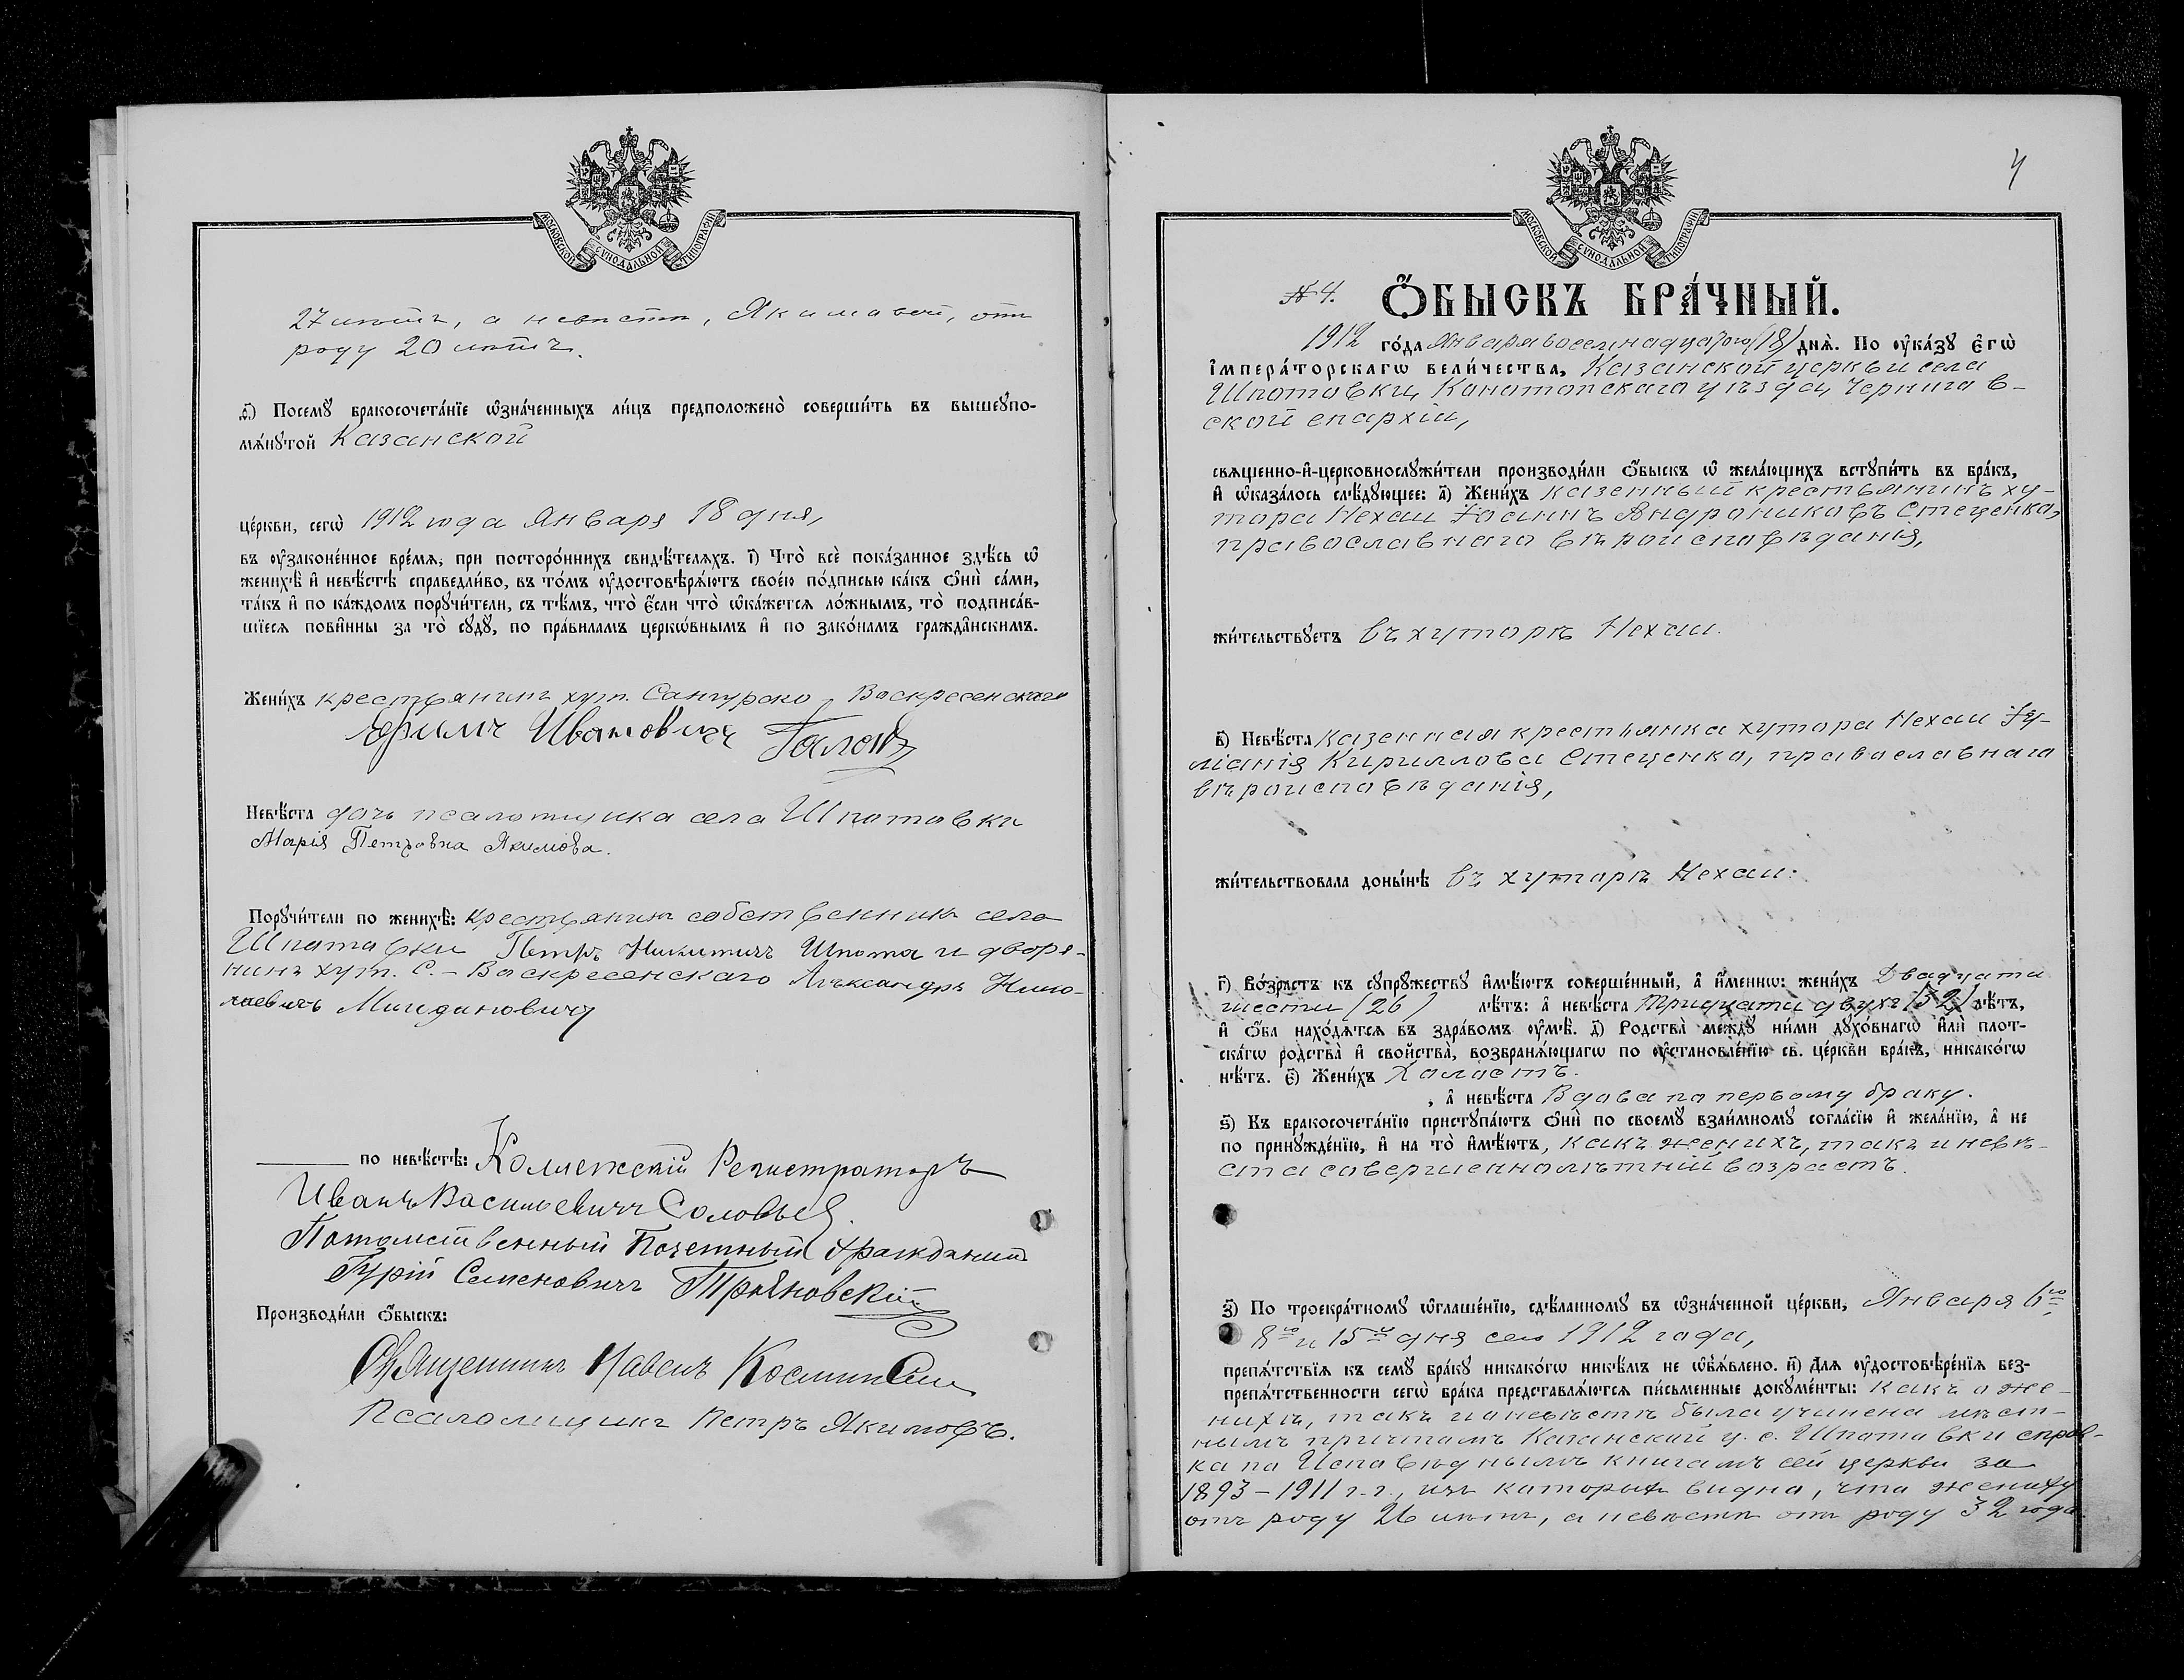 МОСКОВСКОЙ СѴНОДАЛЬНОЙ ТИПОГРАФІИ
27 лѣтъ, а невѣстѣ, Якимовой, отъ
роду 20 лѣтъ.
ѳ҃) Посемꙋ бракосочета́нїе ѡ҆зна́ченныхъ ли́цъ предположено̀ соверши́ть въ вышеꙋпо-
мѧ́нꙋтой Казанской
це́ркви, сегѡ̀ 1912 года Января 18 дня,
въ ᲂу҆законе́нное вре́мѧ, при посторо́ннихъ свидѣ́телѧхъ. і҃) Что̀ всѐ пока́занное здѣ́сь ѡ҆
женихѣ̀ и҆ невѣ́стѣ справедли́во, въ то́мъ ᲂу҆достовѣрѧ́ютъ свое́ю по́дписью ка́къ ѻ҆нѝ са́ми,
та́къ и҆ по ка́ждомъ порꙋчи́тели, съ тѣ́мъ, что̀ є҆́сли что̀ ѡ҆ка́жетсѧ ло́жнымъ, то̀ подписа́в-
шїесѧ пови́нны за то̀ сꙋдꙋ̀, по пра́виламъ церкѡ́внымъ и҆ по зако́намъ гражда̂нскимъ.
Жени́хъ крестьянинъ хут. Сангурско-Воскресенскаго
Ефимъ Ивановичъ
Невѣ́ста дочь псаломщика села Шпотовки
Марія Петровна Якимова.
Порꙋчи́тели по женихѣ̀: крестьянинъ собственникъ села
Шпотовки Петръ Никитичъ Шпота и дворя-
нинъ хут. С.-Воскресенскаго Александръ Нико-
лаевичъ
по невѣ́стѣ: Коллежскій Регистраторъ
Иванъ Васильевичъ Соловьев
Потомственный Почетный Гражданин
Гурій Семеновичъ Трояновскій
Производи́ли ѻ҆́быскъ:
Священникъ Павелъ
Псаломщикъ Петръ Якимовъ.
4
МОСКОВСКОЙ СѴНОДАЛЬНОЙ ТИПОГРАФІИ
№ 4. Ѻ҆́БЫСКЪ БРА́ЧНЫЙ.
1912 го́да Января восемнадцатого (18) днѧ̀. По ᲂу҆ка́зꙋ Є҆гѡ̀
І҆мпера́торскагѡ вели́чества, Казанской церкви села
Шпотовки, Конотопскаго уѣзда, Чернигов-
ской епархіи,
свѧще́нно-и҆-церковнослꙋжи́тели производи́ли ѻ҆́быскъ ѡ҆ жела́ющихъ встꙋпи́ть въ бра́къ,
и҆ ѡ҆каза́лось слѣ́дꙋющее: а҃) Жени́хъ казенный крестьянинъ ху-
тора Нехаи Іоаннъ Андрониковъ Стеценко,
православнаго вѣроисповѣданія,
жи́тельствꙋетъ въ хуторѣ Нехаи.
в҃) Невѣ́ста казенная крестьянка хутора Нехаи Іу-
ліанія Кириллова Стеценко, православнаго
вѣроисповѣданія,
жи́тельствовала доны́нѣ въ хуторѣ Нехаи.
г҃) Во́зрастъ къ сꙋпрꙋ́жествꙋ и҆мѣ́ютъ соверше́нный, а҆ и҆́меннѡ: жени́хъ Двадцати
шести (26) лѣ́тъ: а҆ невѣ́ста тридцати двухъ (32) лѣ́тъ,
и҆ ѻ҆́ба нахо́дѧтсѧ въ здра́вомъ ᲂу҆мѣ̀. д҃) Родства̀ междꙋ̀ ни́ми дꙋхо́внагѡ и҆лѝ плот-
ска́гѡ родства̀ и҆ свойства̀, возбранѧ́ющагѡ по ᲂу҆становле́нїю св. це́ркви бра́къ, никако́гѡ
нѣ́тъ. є҃) Жени́хъ Холостъ.
, а҆ невѣ́ста Вдова по первому браку.
ѕ҃) Къ бракосочета́нїю пристꙋпа́ютъ ѻ҆нѝ по своемꙋ̀ взаи́мномꙋ согла́сїю и҆ жела́нїю, а҆ не
по принꙋжде́нїю, и҆ на то̀ и҆мѣ́ютъ, какъ женихъ, такъ и невѣ-
ста совершеннолѣтній возрастъ.
з҃) По троекра́тномꙋ ѡ҆глаше́нїю, сдѣ́ланномꙋ въ ѡ҆зна́ченной це́ркви, Января 6го
8го и 15го дня сего 1912 года,
препѧ́тствїѧ къ семꙋ̀ бра́кꙋ никако́гѡ никѣ́мъ не ѡ҆б̾ѧ́влено. и҃) Длѧ ᲂу҆достовѣре́нїѧ без-
препѧ́тственности сегѡ̀ бра́ка представлѧ́ютсѧ пи́сьменные докꙋме́нты: какъ о же-
нихѣ, такъ и о невѣстѣ была учинена мѣст-
нымъ причтомъ Казанской ц. с. Шпотовки справ-
ка по Исповѣднымъ книгамъ сей церкви за
1893-1911 г.г., изъ которыхъ видно, что жениху
отъ роду 26 лѣтъ, а невѣстѣ отъ роду 32 года.